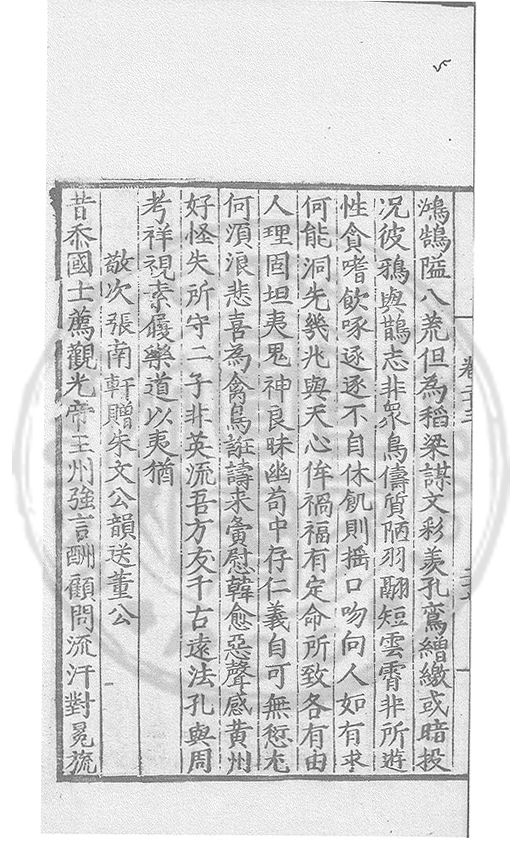 鴻鵠隘八荒但為稻梁謀文彩羨孔鸞繒繳或暗投
况彼鴉與鵲志非衆鳥儔質陋羽翮短雲霄非所遊
性貪嗜飲啄逐逐不自休飢則搖口吻向人如有求
何能洞先幾兆與天心侔禍福有定命所致各有由
人理固坦夷鬼神良昧幽苟中存仁義自可無愆尤
何湏浪悲喜為禽鳥誑譸来彙慰韓愈惡聲感黄州
好怪失所守二子非英流吾方友千古遠法孔與周
考祥視素履樂道以夷猶
敬次張南軒贈朱文公韻送董公
昔忝國士薦觀光帝王州強言酬顧問流汗對冕旒